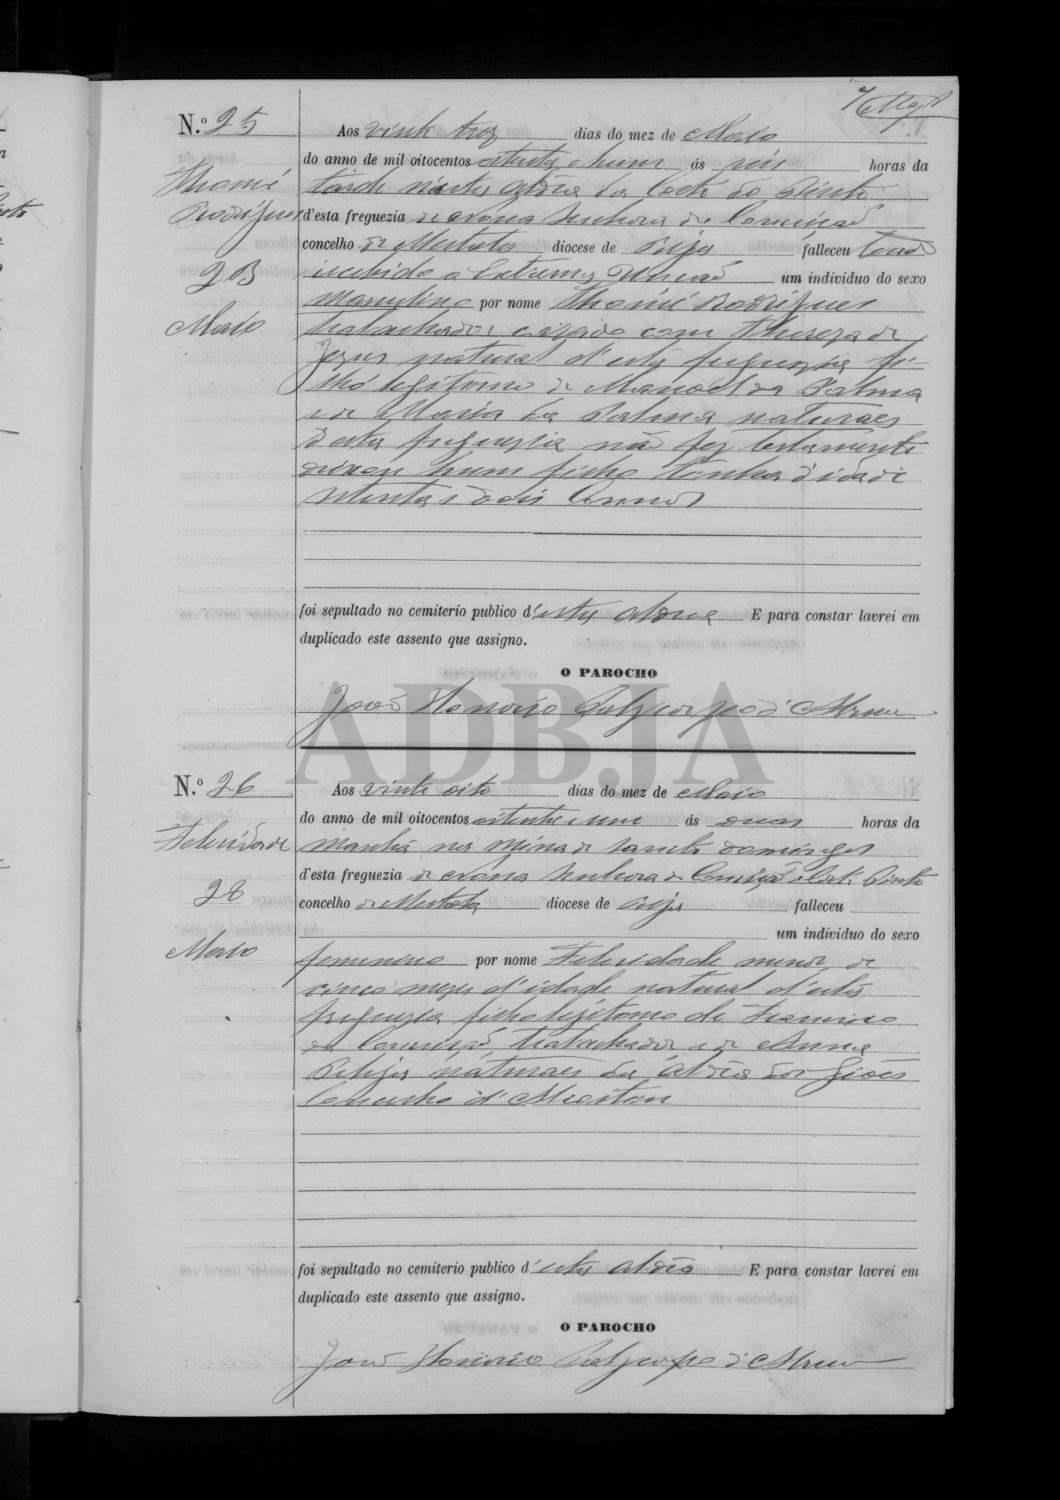 7
N.º 25
Aos vinte trez dias do mez de Maio
do anno de mil oitocentos oitenta e hum ás seis horas da
Thomé
tarde n'esta aldêa da Corte do Pinto
Rodrigues
d'esta freguezia de Nossa Senhora da Conceição
concelho de Mertola diocese de Beja falleceu tendo
23
recebido a Extrema Unção um individuo do sexo
Maio
masculino por nome Thomé Rodrigues
trabalhador cazado com Thereza de
Jezus natural d'esta freguezia fi-
lho legitimo de Manoel da Palma
e de Maria da Palma naturaes
desta freguezia não fez testamento
deixou hum filho tinha d'idade
setenta e dois annos
foi sepultado no cemiterio publico d'esta aldea E para constar lavrei em
duplicado este assento que assigno.
O PAROCHO
João Honorio d'Abreu
ADBJA
N.º 26
Aos vinte oito dias do mez de Maio
do anno de mil oitocentos oitenta e um ás duas horas da
Felicidade
manhã na Mina de Sancto Domingos
d'esta freguezia de Nossa Senhora da Conceição Corte Pinto
28
concelho de Mertola diocese de Beja falleceu
um individuo do sexo
Maio
femenino por nome Felicidade menor de
cinco mezes d'idade natural d'esta
freguezia filha legitima de Francisco
da Conceição trabalhador e de Anna
naturaes da aldêa dos Giões
Concelho d'Alcoutim
foi sepultado no cemiterio publico d'esta aldêa E para constar lavrei em
duplicado este assento que assigno.
O PAROCHO
João Honorio d'Abreu